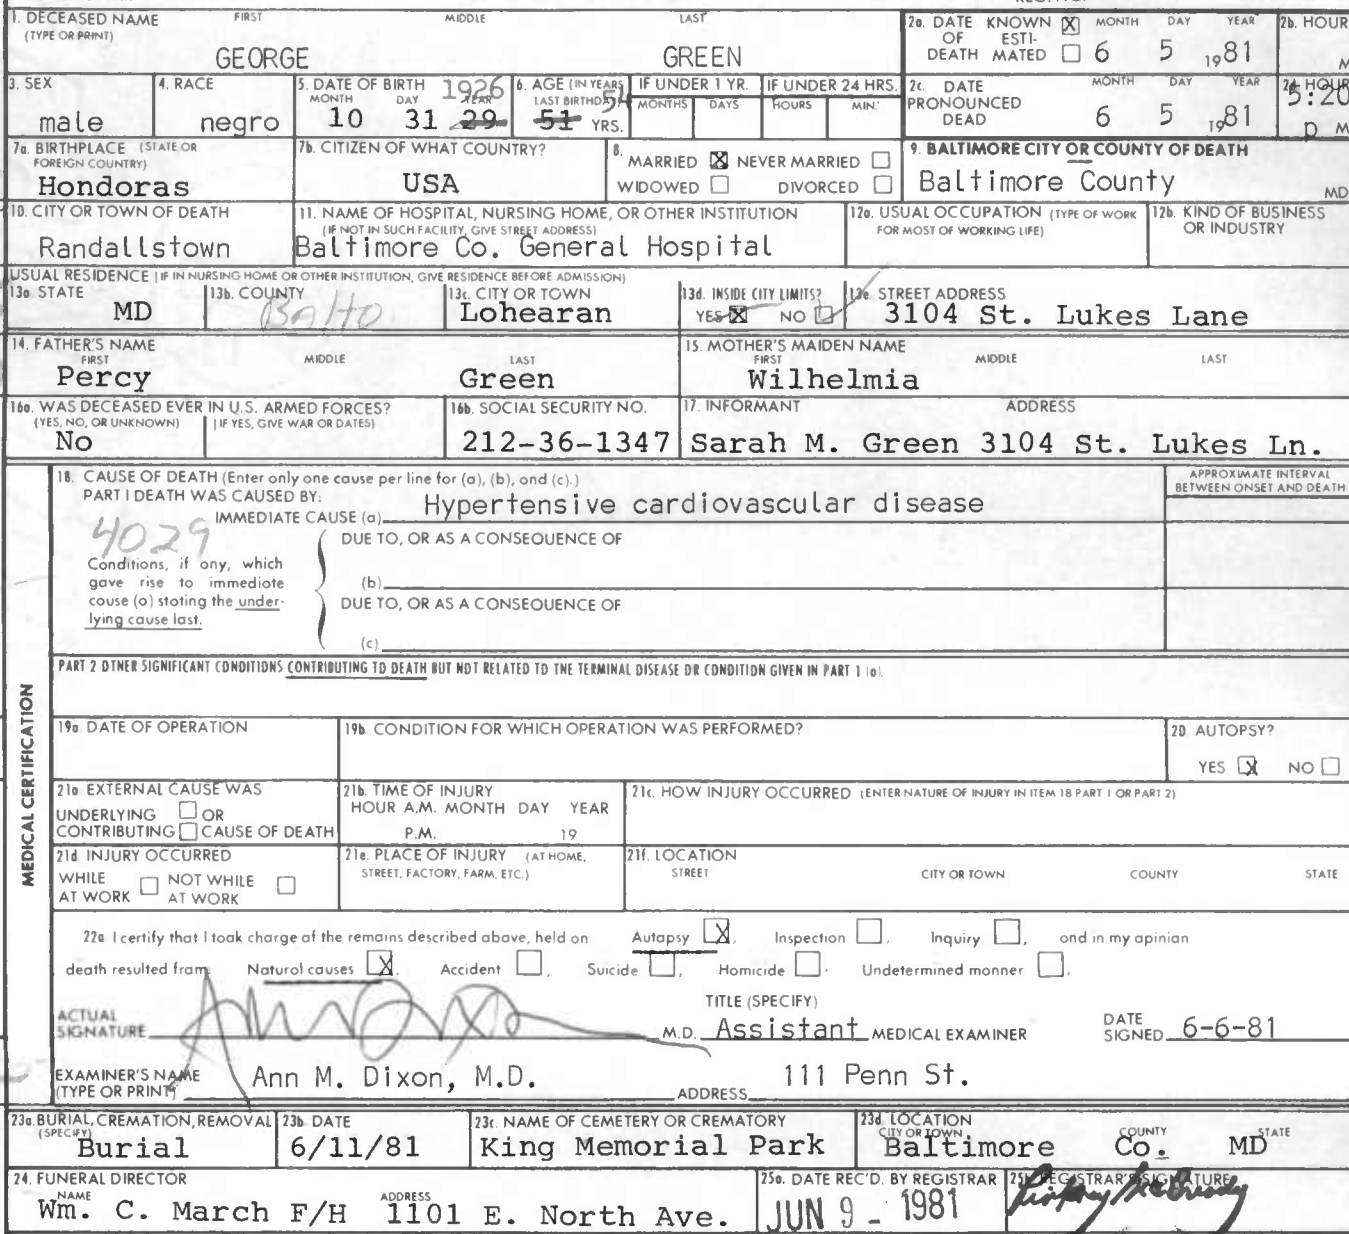 1. DECEASED NAME FIRST MIDDLE LAST
(TYPE OR PRINT)
GEORGE GREEN
2a. DATE KNOWN X MONTH DAY YEAR
OF ESTI-
DEATH MATED 6 5 1981
2b. HOUR
M
3. SEX
male
4. RACE
negro
5. DATE OF BIRTH 1926
MONTH DAY YEAR
10 31 29
6. AGE (IN YEARS
LAST BIRTHDAY) 54
51 YRS.
IF UNDER 1 YR.
MONTHS DAYS
IF UNDER 24 HRS.
HOURS MIN.
2c. DATE MONTH DAY YEAR
PRONOUNCED
DEAD 6 5 1981
2d HOUR
5:20
p M
7a. BIRTHPLACE (STATE OR
FOREIGN COUNTRY)
Hondoras
7b. CITIZEN OF WHAT COUNTRY?
USA
8.
MARRIED X NEVER MARRIED
WIDOWED DIVORCED
9. BALTIMORE CITY OR COUNTY OF DEATH
Baltimore County MD
10. CITY OR TOWN OF DEATH
Randallstown
11. NAME OF HOSPITAL, NURSING HOME, OR OTHER INSTITUTION
(IF NOT IN SUCH FACILITY, GIVE STREET ADDRESS)
Baltimore Co. General Hospital
12a. USUAL OCCUPATION (TYPE OF WORK
FOR MOST OF WORKING LIFE)
12b. KIND OF BUSINESS
OR INDUSTRY
USUAL RESIDENCE (IF IN NURSING HOME OR OTHER INSTITUTION, GIVE RESIDENCE BEFORE ADMISSION)
13a. STATE
MD
13b. COUNTY
Balto
13c. CITY OR TOWN
Lohearan
13d. INSIDE CITY LIMITS?
YES X NO
13e. STREET ADDRESS
3104 St. Lukes Lane
14. FATHER'S NAME
FIRST MIDDLE LAST
Percy Green
15. MOTHER'S MAIDEN NAME
FIRST MIDDLE LAST
Wilhelmia
16a. WAS DECEASED EVER IN U.S. ARMED FORCES?
(YES, NO, OR UNKNOWN) (IF YES, GIVE WAR OR DATES)
No
16b. SOCIAL SECURITY NO.
212-36-1347
17. INFORMANT ADDRESS
Sarah M. Green 3104 St. Lukes Ln.
MEDICAL CERTIFICATION
18. CAUSE OF DEATH (Enter only one cause per line for (a), (b), and (c).)
PART I DEATH WAS CAUSED BY:
IMMEDIATE CAUSE (a) Hypertensive cardiovascular disease
APPROXIMATE INTERVAL
BETWEEN ONSET AND DEATH
4029
DUE TO, OR AS A CONSEQUENCE OF
Conditions, if any, which
gave rise to immediate
cause (a) stating the under-
lying cause last.
(b)
DUE TO, OR AS A CONSEQUENCE OF
(c)
PART 2 OTHER SIGNIFICANT CONDITIONS CONTRIBUTING TO DEATH BUT NOT RELATED TO THE TERMINAL DISEASE OR CONDITION GIVEN IN PART 1 (a).
19a DATE OF OPERATION
19b. CONDITION FOR WHICH OPERATION WAS PERFORMED?
20 AUTOPSY?
YES X NO
21a. EXTERNAL CAUSE WAS
UNDERLYING OR
CONTRIBUTING CAUSE OF DEATH
21b. TIME OF INJURY
HOUR A.M. MONTH DAY YEAR
P.M. 19
21c. HOW INJURY OCCURRED (ENTER NATURE OF INJURY IN ITEM 18 PART 1 OR PART 2)
21d INJURY OCCURRED
WHILE NOT WHILE
AT WORK AT WORK
21e. PLACE OF INJURY (AT HOME,
STREET, FACTORY, FARM, ETC.)
21f. LOCATION
STREET CITY OR TOWN COUNTY STATE
22a I certify that I took charge of the remains described above, held on Autopsy X, Inspection , Inquiry , and in my opinion
death resulted from Natural causes X. Accident , Suicide , Homicide . Undetermined manner .
ACTUAL
SIGNATURE M.D.
TITLE (SPECIFY)
Assistant MEDICAL EXAMINER
DATE
SIGNED 6-6-81
EXAMINER'S NAME
(TYPE OR PRINT) Ann M. Dixon, M.D.
ADDRESS 111 Penn St.
23a. BURIAL, CREMATION, REMOVAL
(SPECIFY)
Burial
23b. DATE
6/11/81
23c. NAME OF CEMETERY OR CREMATORY
King Memorial Park
23d. LOCATION
CITY OR TOWN COUNTY STATE
Baltimore Co. MD
24. FUNERAL DIRECTOR
NAME ADDRESS
Wm. C. March F/H 1101 E. North Ave.
25a. DATE REC'D. BY REGISTRAR
JUN 9 - 1981
25b. REGISTRAR'S SIGNATURE